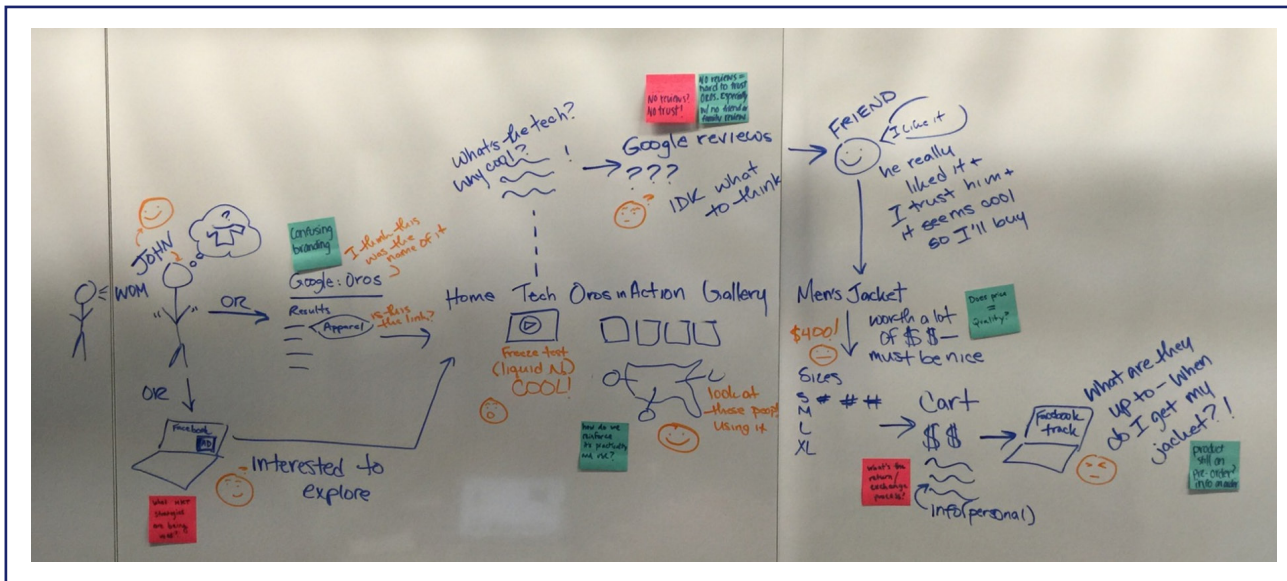 WOM
JOHN
?
OR
OR
Facebook
AD
Interested to
explore
What
strategies
are being
used?
Confusing
branding
I think this
was the
name of it
Google: Oros
Results
Apparel
is this
the link?
What's the tech?
Why cool?
!
Home Tech Oros in Action Gallery
Freeze test
(liquid N₂)
COOL!
look at
those people
using it
how do we
reinforce
its practicality
and use?
No reviews?
No trust!
No reviews =
hard to trust
OROS, especially
w/ no friend or
family reviews
Google reviews
???
?
IDK what
to think
FRIEND
I like it
he really
liked it +
I trust him +
it seems cool
so I'll buy
Men's Jacket
$400!
worth a lot
of $$—
must be nice
Does price
=
Quality?
Sizes
S # # #
M
L
XL
Cart
$$
info (personal)
What's the
return/
exchange
process?
Facebook
track
What are they
up to - When
do I get my
jacket?!
product
still on
pre-order?